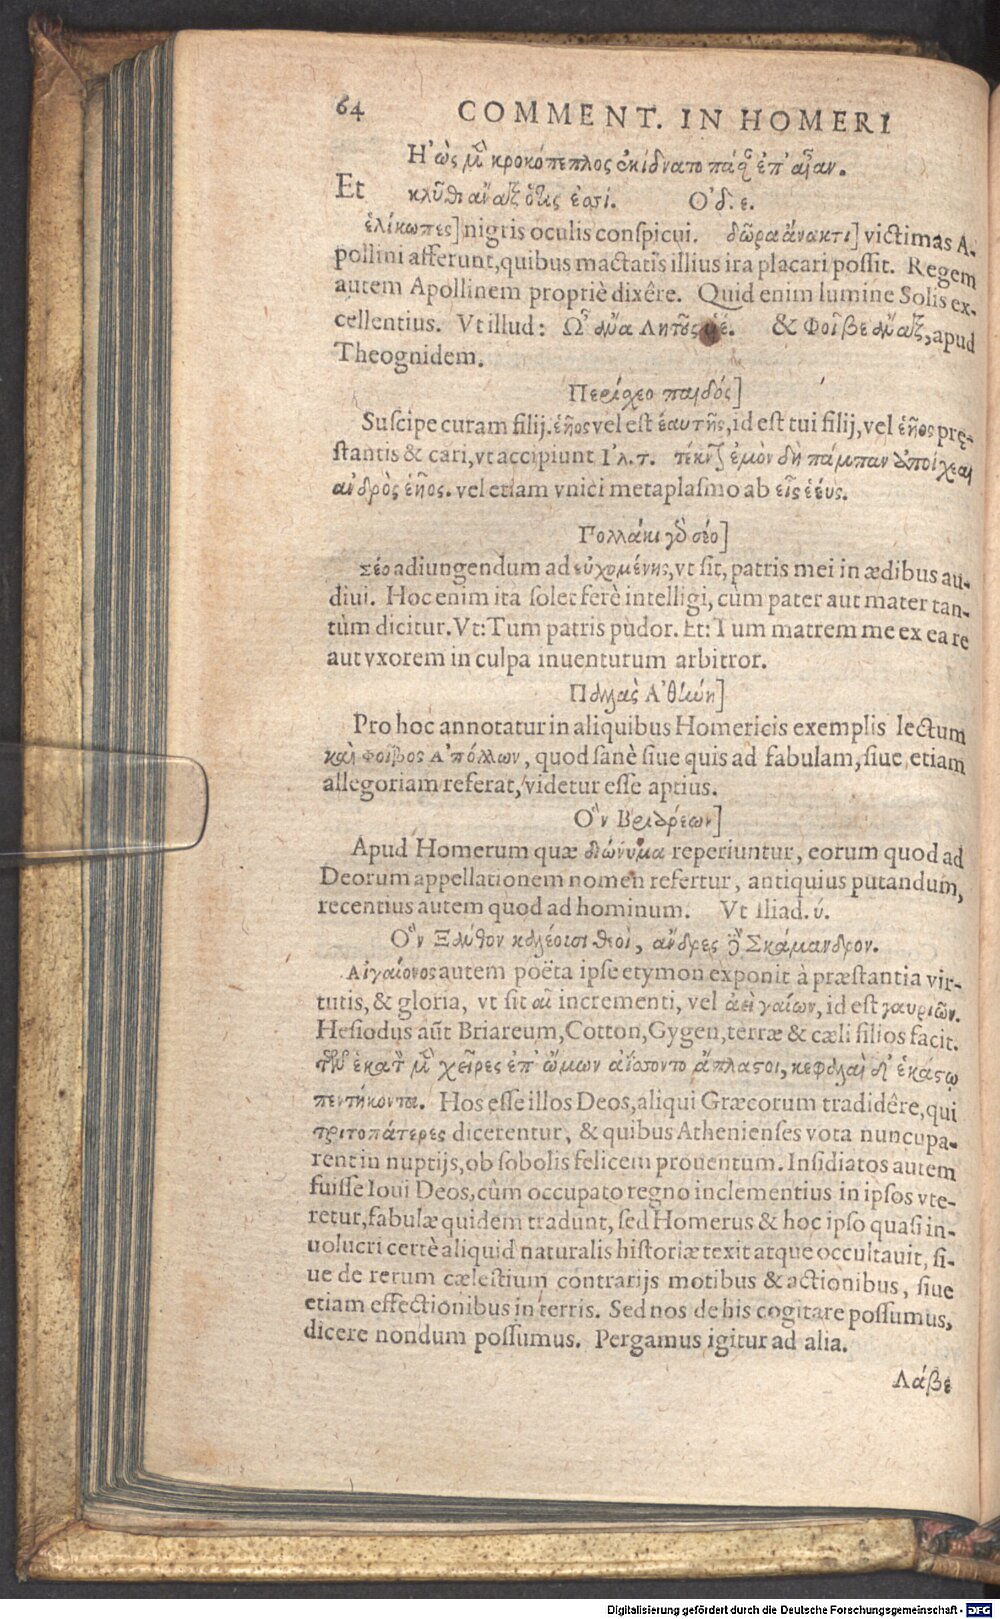 64 COMMENT. IN HOMERI
Η᾽ὼς μὲν κροκόπεπλος ἐκίδνατο πᾶσαν ἐπ᾽ αἶαν.
Et κλῦθι ἄναξ ὅτις ἐσσί. Ο᾽δ. ε.
ἑλίκωπες] nigris oculis conſpicui. δῶρα ἄνακτι] victimas A-
pollini afferunt, quibus mactatis illius ira placari poſſit. Regem
autem Apollinem propriè dixêre. Quid enim lumine Solis ex-
cellentius. Vt illud: Ω῏ ἄνα Λητοῦς υἱέ. & Φοῖβε ἄναξ, apud
Theognidem.
Περίσχεο παιδός]
Suſcipe curam filij. ἑῆος vel eſt ἑαυτῆς, id eſt tui filij, vel ἑῆος prę-
ſtantis & cari, vt accipiunt Ιλ. τ. τέκνον ἐμὸν δὴ πάμπαν ἀποίχεαι
ἀνδρὸς ἑῆος. vel etiam vnici metaplaſmo ab εἷς ἑεύς.
Πολλάκι γὰρ σέο]
σέο adiungendum ad εὐχομένης, vt ſit, patris mei in ædibus au-
diui. Hoc enim ita ſolet ferè intelligi, cùm pater aut mater tan-
tùm dicitur. Vt: Tum patris pudor. Et: Tum matrem me ex ea re
aut vxorem in culpa inuenturum arbitror.
Παλλὰς Α᾽θήνη]
Pro hoc annotatur in aliquibus Homericis exemplis lectum
καὶ Φοῖβος Α᾽πόλλων, quod ſanè ſiue quis ad fabulam, ſiue etiam
allegoriam referat, videtur eſſe aptius.
Ο῝ν Βριάρεων]
Apud Homerum quæ διώνυμα reperiuntur, eorum quod ad
Deorum appellationem nomen refertur, antiquius putandum,
recentius autem quod ad hominum. Vt Iliad. ύ.
Ο῝ν Ξάνθον καλέουσι θεοὶ, ἄνδρες δὲ Σκάμανδρον.
Αἰγαίονος autem poëta ipſe etymon exponit à præſtantia vir-
tutis, & gloria, vt ſit αἰ incrementi, vel ἀεὶ γαίων, id eſt γαυριῶν.
Heſiodus aūt Briareum, Cotton, Gygen, terræ & cæli filios facit.
τῶν ἑκατὸν μὲν χεῖρες ἐπ᾽ ὤμων ἀίσσοντο ἄπλαστοι, κεφαλαὶ δ᾽ ἑκάστῳ
πεντήκοντα. Hos eſſe illos Deos, aliqui Græcorum tradidêre, qui
τριτοπάτερες dicerentur, & quibus Athenienſes vota nuncupa-
rent in nuptijs, ob ſobolis felicem prouentum. Inſidiatos autem
fuiſſe Ioui Deos, cùm occupato regno inclementius in ipſos vte-
retur, fabulæ quidem tradunt, ſed Homerus & hoc ipſo quaſi in-
uolucri certè aliquid naturalis hiſtoriæ texit atque occultauit, ſi-
ue de rerum cæleſtium contrarijs motibus & actionibus, ſiue
etiam effectionibus in terris. Sed nos de his cogitare poſſumus,
dicere nondum poſſumus. Pergamus igitur ad alia.
Λάβε
Digitalisierung gefördert durch die Deutsche Forschungsgemeinschaft - DFG